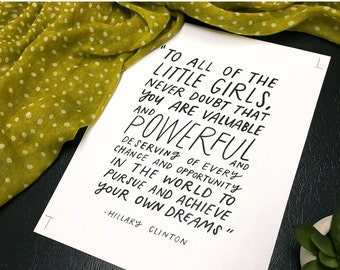 "TO ALL OF THE
LITTLE GIRLS,
NEVER DOUBT THAT
YOU ARE VALUABLE
AND
POWERFUL
AND
DESERVING OF EVERY
CHANCE AND OPPORTUNITY
IN THE WORLD TO
PURSUE AND ACHIEVE
YOUR OWN DREAMS"
-HILLARY CLINTON